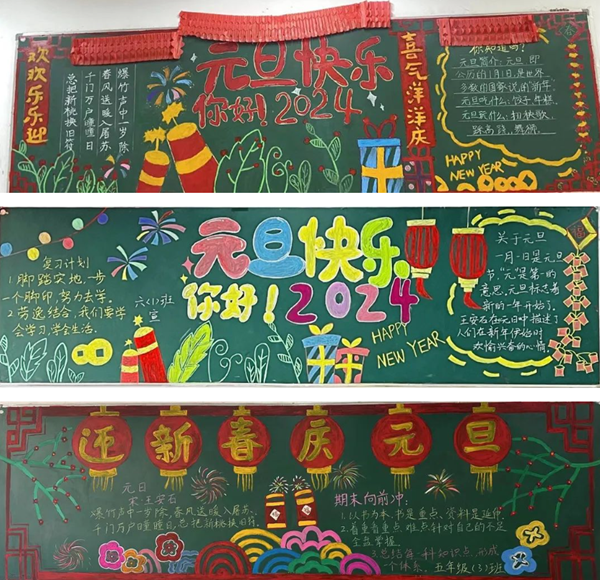 欢欢乐乐迎
爆竹声中一岁除
春风送暖入屠苏
千门万户曈曈日
总把新桃换旧符
元旦快乐
你好!2024
喜气洋洋庆
你知道吗?
元旦简介:元旦 即
公历的1月1日,是世界
多数国家说的“新年”
元旦吃什么:饺子、年糕
元旦玩什么:扭秧歌
HAPPY
NEW YEAR
复习计划
1.脚踏实地,一步
一个脚印,努力去学。
2.劳逸结合,我们要学
会学习,学会生活。
六(1)班
宣
元旦快乐
你好!2024
HAPPY
NEW YEAR
关于元旦
一月一日是元旦
节“元”是第一的
意思,元旦标志着
新的一年开始了,
王安石在元日中描述了
人们在新年伊始时
欢愉兴奋的心情。
迎新春庆元旦
元日
宋 王安石
爆竹声中一岁除,春风送暖入屠苏。
千门万户曈曈日,总把新桃换旧符。
期末向前冲:
1.以书为本,书是重点,资料是延伸
2.看重查重点,难点针对自己的不足
全面掌握
3.总结每一科知识点,形成
一个体系。五年级(3)班